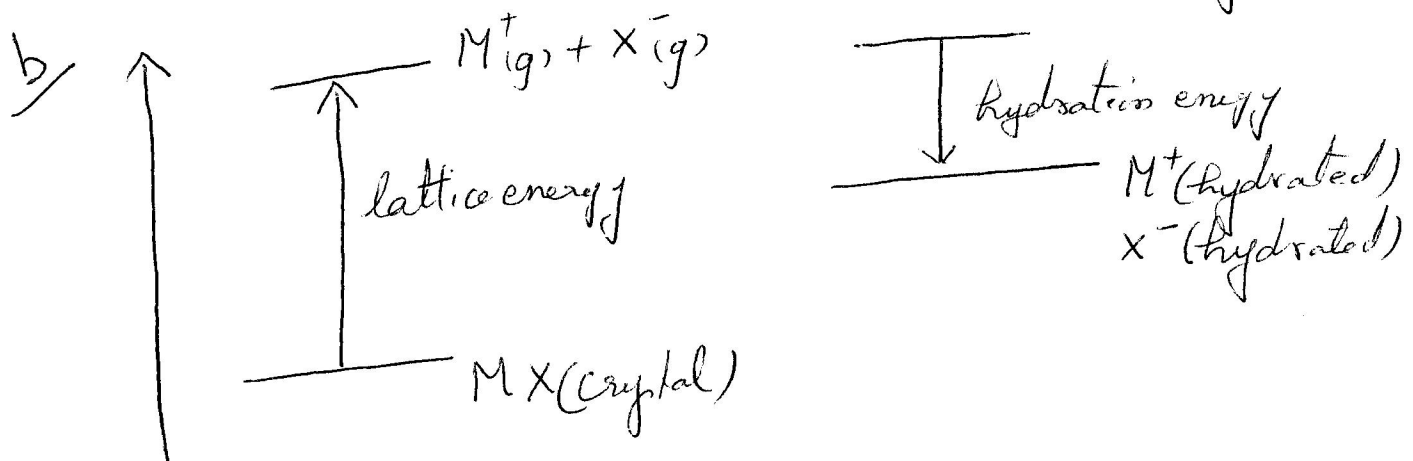 b/
M⁺(g) + X⁻(g)
lattice energy
MX(Crystal)
hydration energy
M⁺(hydrated)
X⁻(hydrated)